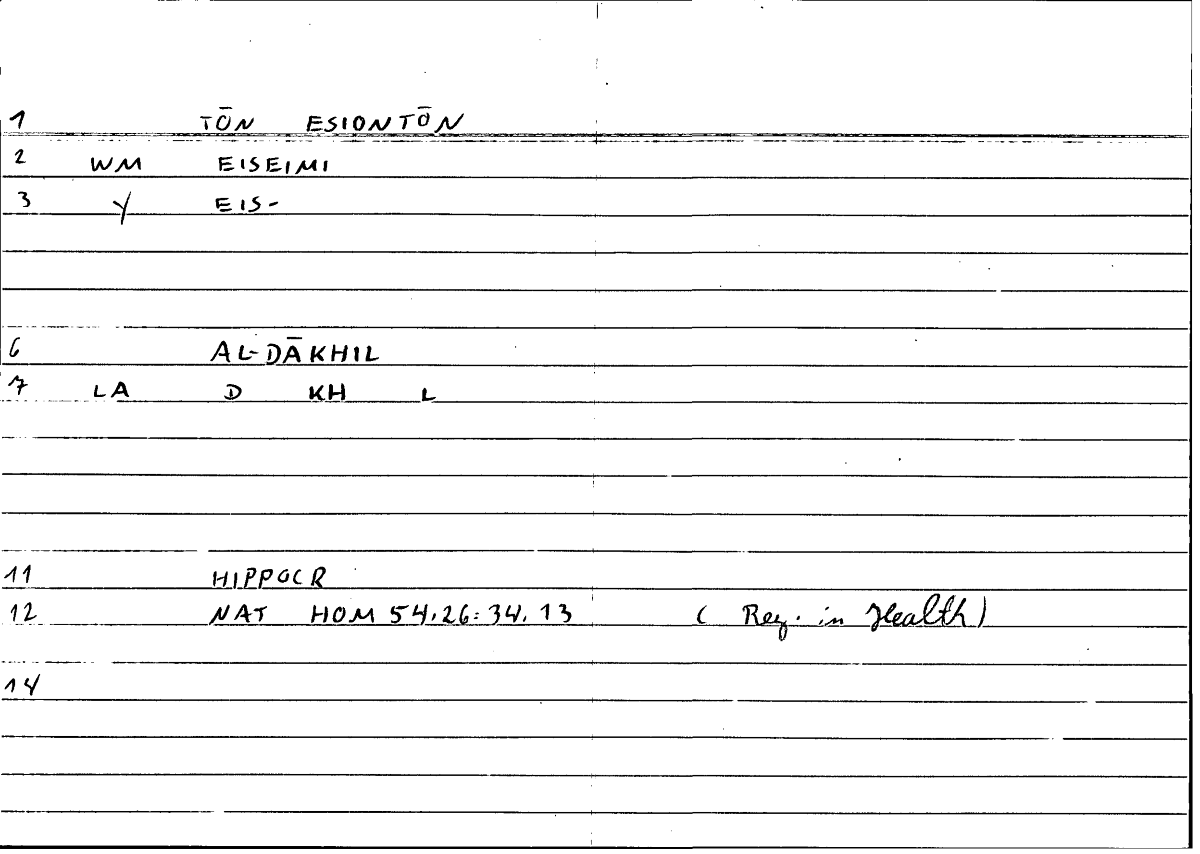 1 TŌN ESIONTŌN
2 WM EISEIMI
3 Y EIS-
6 AL-DĀKHIL
7 LA D KH L
11 HIPPOCR
12 NAT HOM 54.26:34.13 ( Reg. in Health)
14